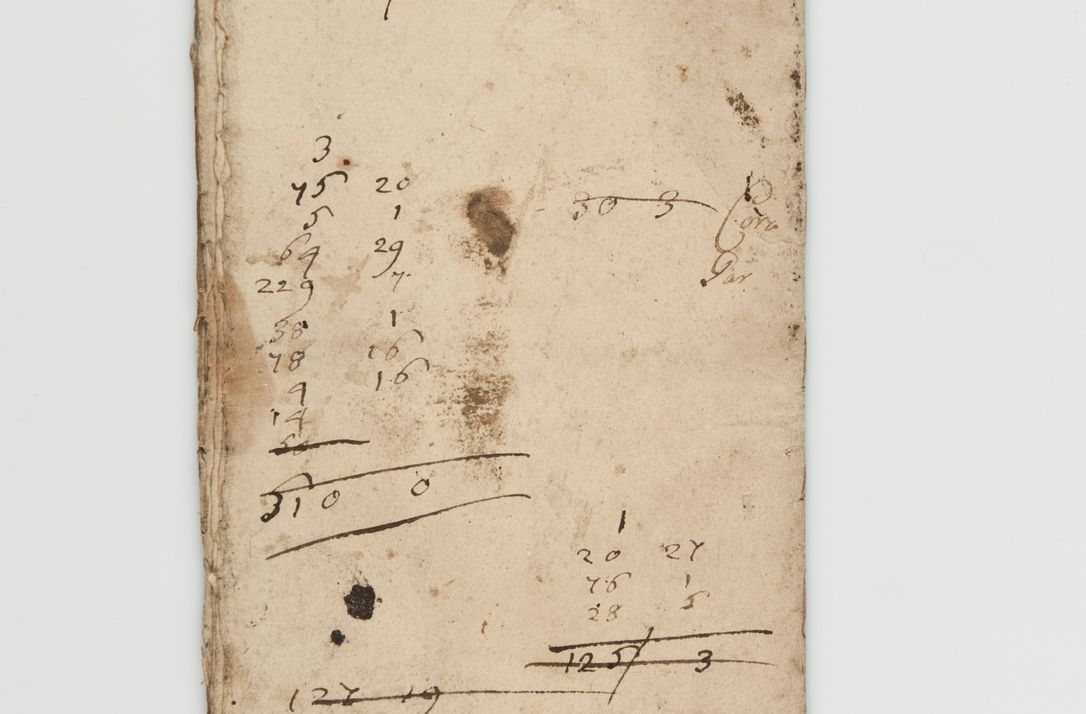 3
75 20
5 1
64 29
229 7
38 1
78 16
4 16
14
510 0
30 3
Coro
Par
1
20 27
76 1
28 5
125 3
127 19